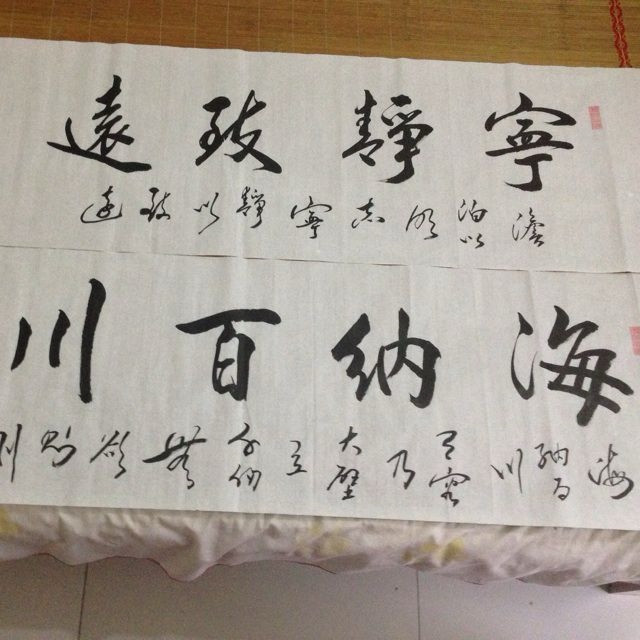 寧靜致遠
澹泊以明志寧靜以致遠
海納百川
海納百川有容乃大壁立千仞無欲則剛